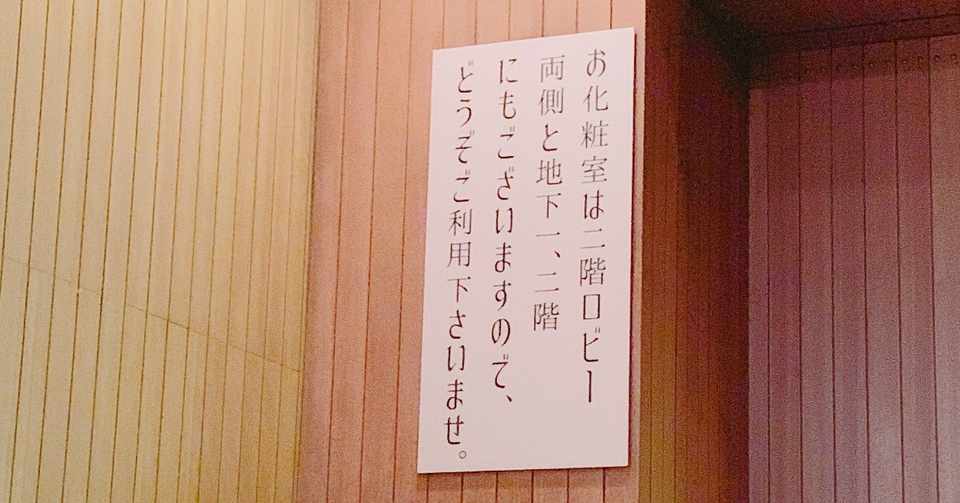 お化粧室は二階ロビー
両側と地下一、二階
にもございますので、
どうぞご利用下さいませ。